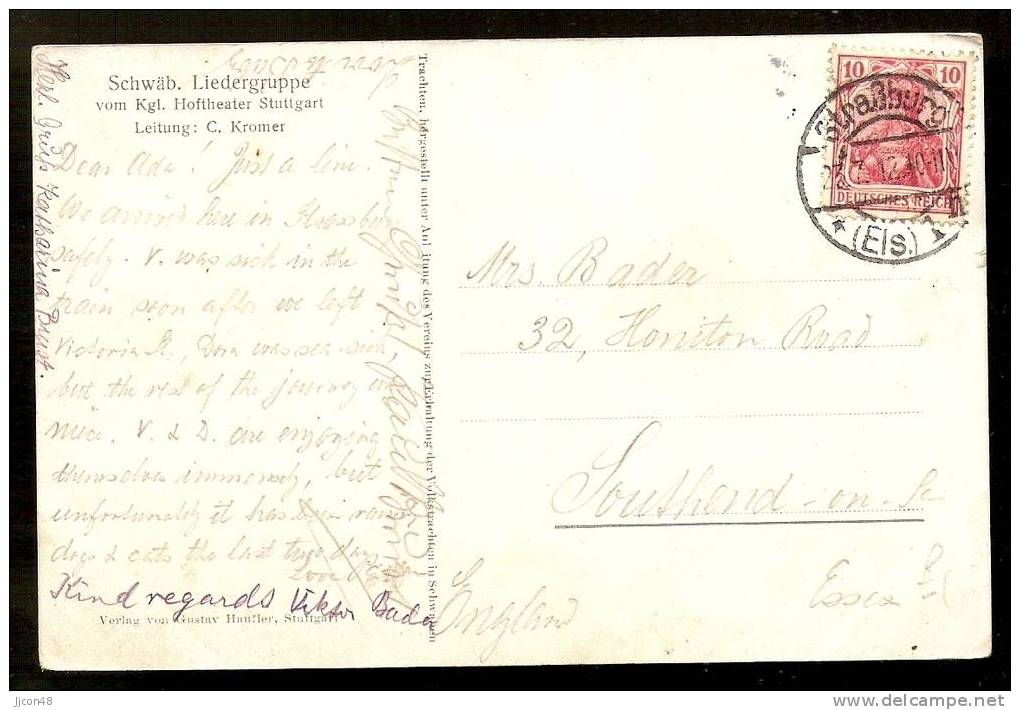 Schwäb. Liedergruppe
vom Kgl. Hoftheater Stuttgart
Leitung: C. Kromer
Dear Ada! Just a line.
We arrived here in Strassburg
safely. V. was sick in the
train soon after we left
Victoria St., Dora was sea-sick,
but the rest of the journey was
nice. V. & D. are enjoying
themselves immensely, but
unfortunately it has been raining
dogs & cats the last two days
Kind regards Viktor Bader
Verlag von Gustav Haufler, Stuttgart
Herl. Gruss Katharina
Trachten, hergestellt unter Anleitung des Vereins zur Erhaltung der Volkstrachten in Schwaben
10 10
DEUTSCHES REICH
Straßburg
(Els.)
Mrs. Bader
32, Honiton Road
Southend-on-Sea
Essex
England
jjcon48
delcampe.net